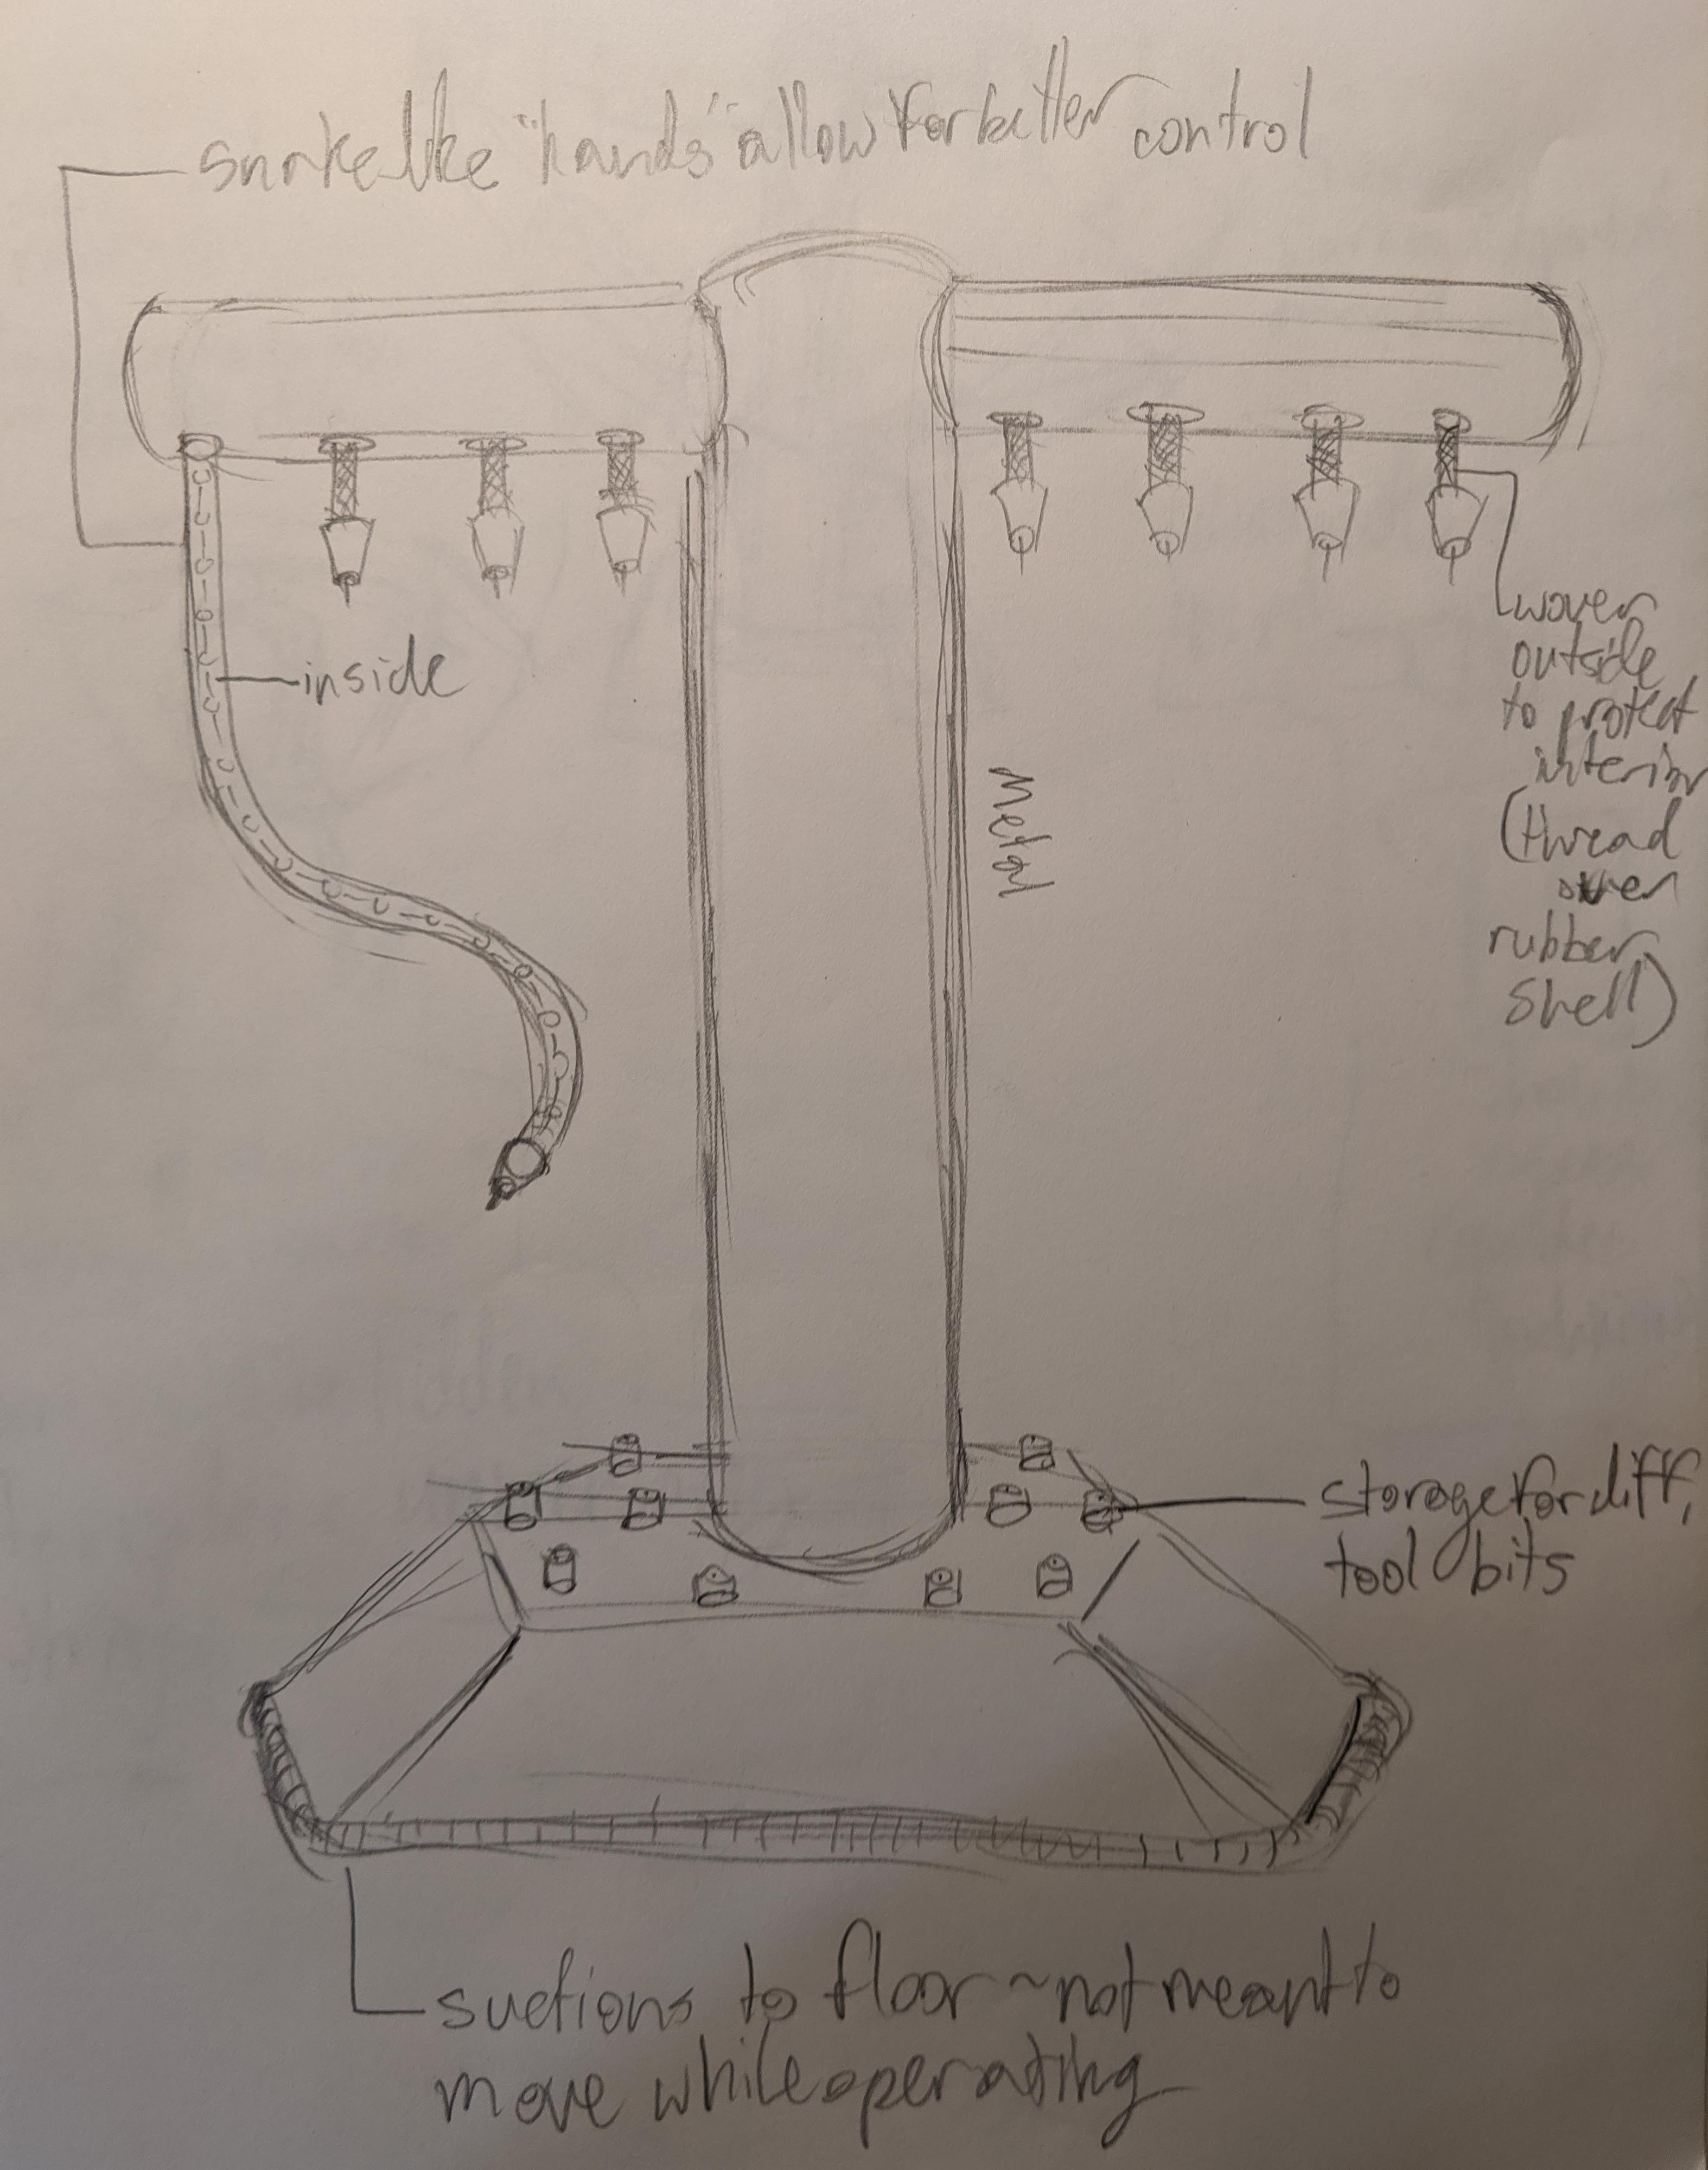 snakelike "hands" allow for better control
inside
woven
outside
to protect
interior
(thread
over
rubber
shell)
Metal
storage for diff,
tool bits
suctions to floor ~ not meant to
move while operating